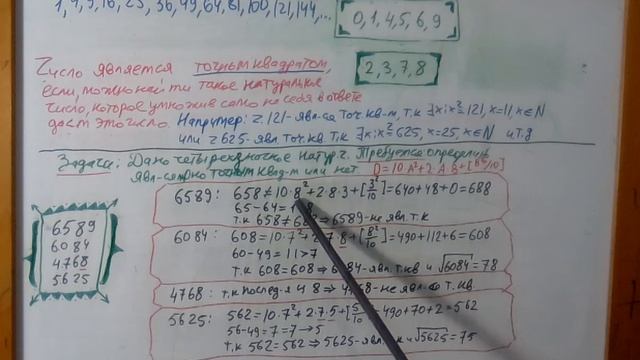 1, 4, 9, 16, 25, 36, 49, 64, 81, 100, 121, 144, ...
0, 1, 4, 5, 6, 9
Число является точным квадратом,
если, можно найти такое натуральное
число, которое умножив само на себя в ответе
даст это число. Например: ч. 121 - явл-ся точ. кв-м, т.к ∃x: x²=121, x=11, x∈N
или ч 625 - явл точ. кв. т.к ∃x: x²=625, x=25, x∈N и т.д
2, 3, 7, 8
Задача: Дано четырехзначное натур. ч. Требуется определить
явл-ся ли оно точным квад-м или нет D=10·A²+2·A·B+[B²/10]
6589
6084
4768
5625
6589: 658≠10·8²+2·8·3+[3²/10]=640+48+0=688
65-64=1
т.к 658≠688 ⇒ 6589-не явл. т.к
6084: 608=10·7²+2·7·8+[8²/10]=490+112+6=608
60-49=11>7
т.к 608=608 ⇒ 6084-явл. т.кв и √6084=78
4768: т.к послед-я ч 8 ⇒ 4768-не явл-ся т. кв.
5625: 562=10·7²+2·7·5+[5²/10]=490+70+2=562
56-49=7=7→5
т.к 562=562 ⇒ 5625-явл. т.к и √5625=75